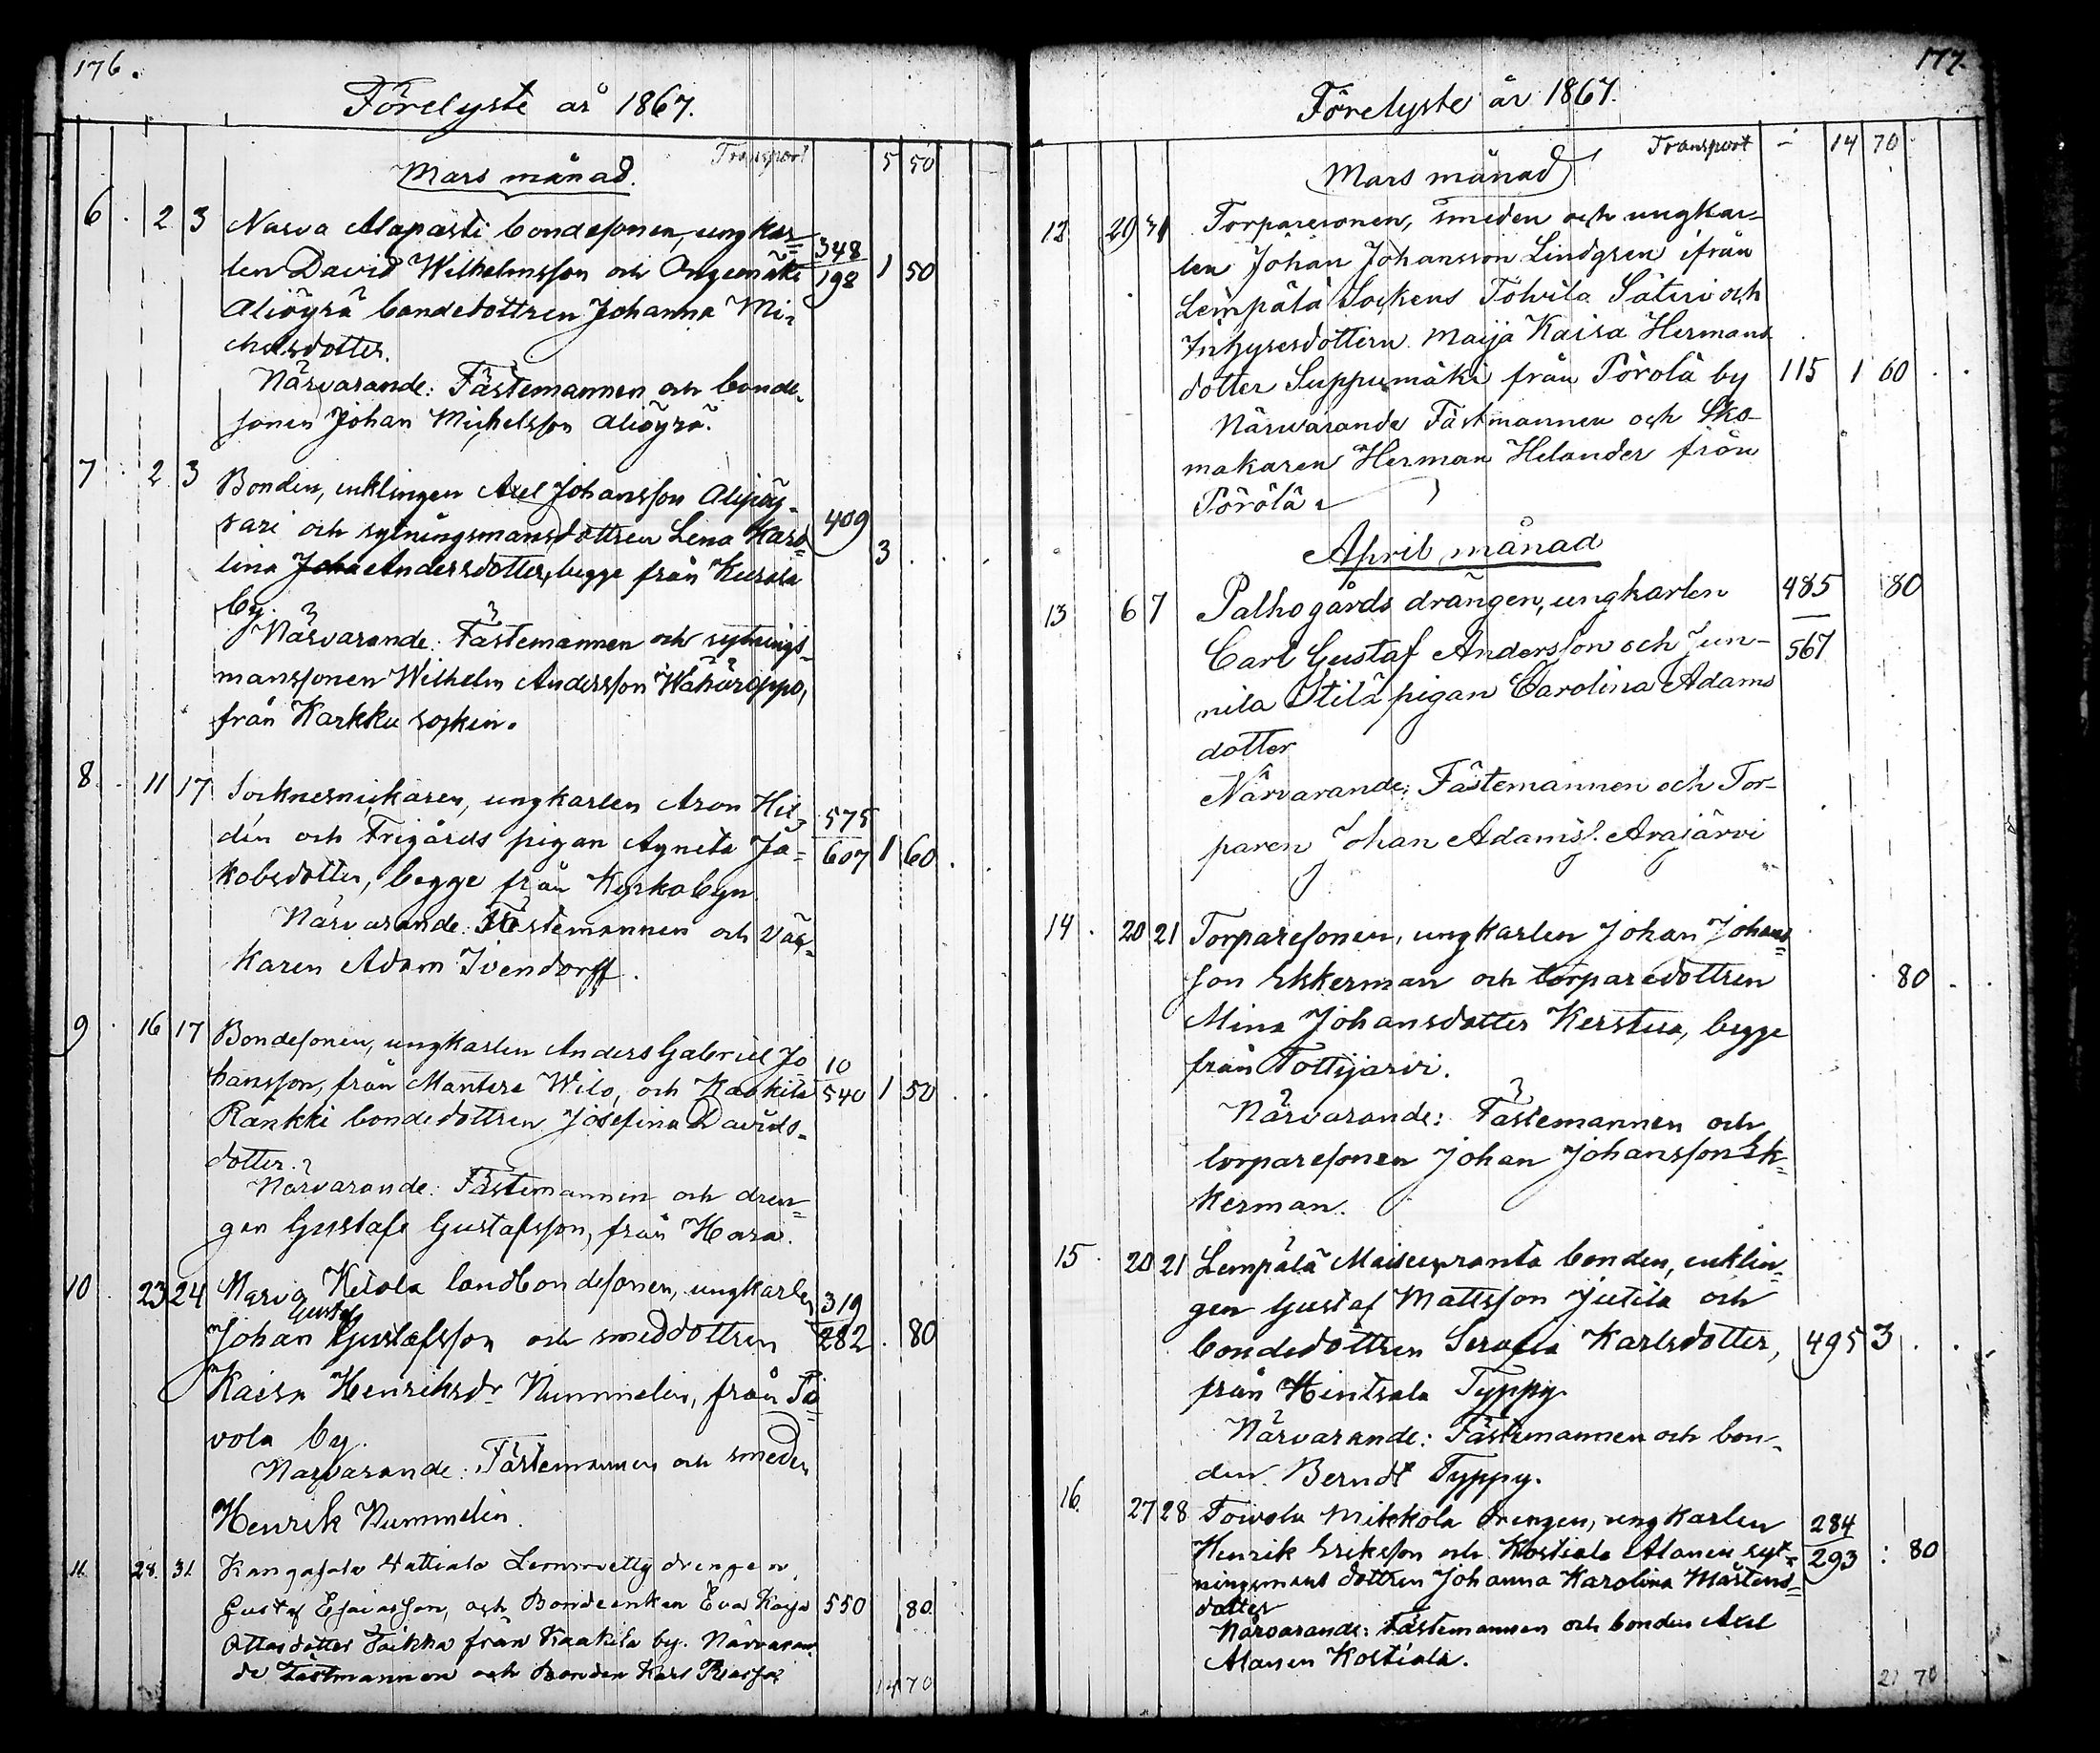 176.
Förelyste år 1867.
Transport 5 50
Mars månad.
6. 2 3 Narva Alapasti bondesonen, ungkar=
len David Wilhelmsson och Ongeemäki 348 198 1 50
Aliöyrä bondedottren Johanna Mi-
chelsdotter.
Närvarande: Fästemannen och bonde-
sonen Johan Michelsson Aliöyrä.
7. 2 3 Bonden, enklingen Axel Johansson
sari och sytningsmansdottren Lena Karo= 409
lina Andersdotter, begge från Kurala 3
by.
Närvarande: Fästemannen och sytnings-
manssonen Wilhelm Andersson Wähäroppo,
från Karkku socken.
8. 11 17 Socknesnickaren, ungkarlen Aron Hil= 575
dén och Frigårds pigan Agneta Ja= 607 1 60
kobsdotter, begge från Kyrkobyn
Närvarande: Fästemannen och Väs-
karen Adam Ivendorff.
9. 16 17 Bondesonen, ungkarlen Anders Gabriel Jo 10
hansson, från Mantere Wilo, och Kaakila 540 1 50
Rankki bondedottren Josefina Davids-
dotter.
Närvarande: Fästemannen och dren=
gen Gustafs Gustafsson, från Hora.
10. 23 24 Narva Ketola landbondesonen, ungkarlen 319
Gustaf
Johan Gustafsson och smeddottren 282 . 80
Kaisa Henriksdr Nummelin, från To=
vola by.
Närvarande: Fästemannen och smeden
Henrik Nummelin.
11. 28. 31. Kangasala Lemmetty drengen,
Gustaf Esaiasson, och Bondeenkan Eva Kaisa 550 80.
Ottosdotter från Kaakila by. Närvaran-
de Fästmannen och Bonden Karl
14 70
177.
Förelyste år 1867.
Transport - 14 70
Mars månad
12. 29 31 Torparesonen, smeden och ungkar-
len Johan Johansson Lindgren ifrån
Lempälä Sockens Tolvila Säteri och
Inhysesdottern Maija Kaisa Hermans
dotter Suppumäki från Pörölä by 115 1 60
Närvarande Fästmannen och Sko-
makaren Herman Helander från
Pörölä
April månad
13 6 7 Palhogårds drängen, ungkarlen 485 80
Carl Gustaf Andersson och Jun- 567
nila Stilä pigan Carolina Adams
dotter
Närvarande: Fästemannen och Tor-
paren Johan Adamss. Arajärvi
14. 20 21 Torparesonen, ungkarlen Johan Johans=
son Ekkerman och torparedottren 80
Mina Johansdotter Kerstua, begge
från Tottijarvi.
Närvarande: Fästemannen och
torparesonen Johan Johansson Ek=
kerman.
15. 20 21 Lempälä Maisenranta bonden, enklin=
gen Gustaf Mattsson Jutila och
bondedottren Serafia Karlsdotter, 495 3
från Hintsala Typpy.
Närvarande: Fästemannen och bon-
den Berndt Typpy.
16. 27 28 Toivola Mikkola drengen, ungkarlen 284
Henrik Eriksson och Kostiala Alanen syt= 293 : 80
ningsmans dottren Johanna Karolina Mårtens=
dotter
Närvarande: Fästemannen och bonden Axel
Alanen Kostiala.
21 70